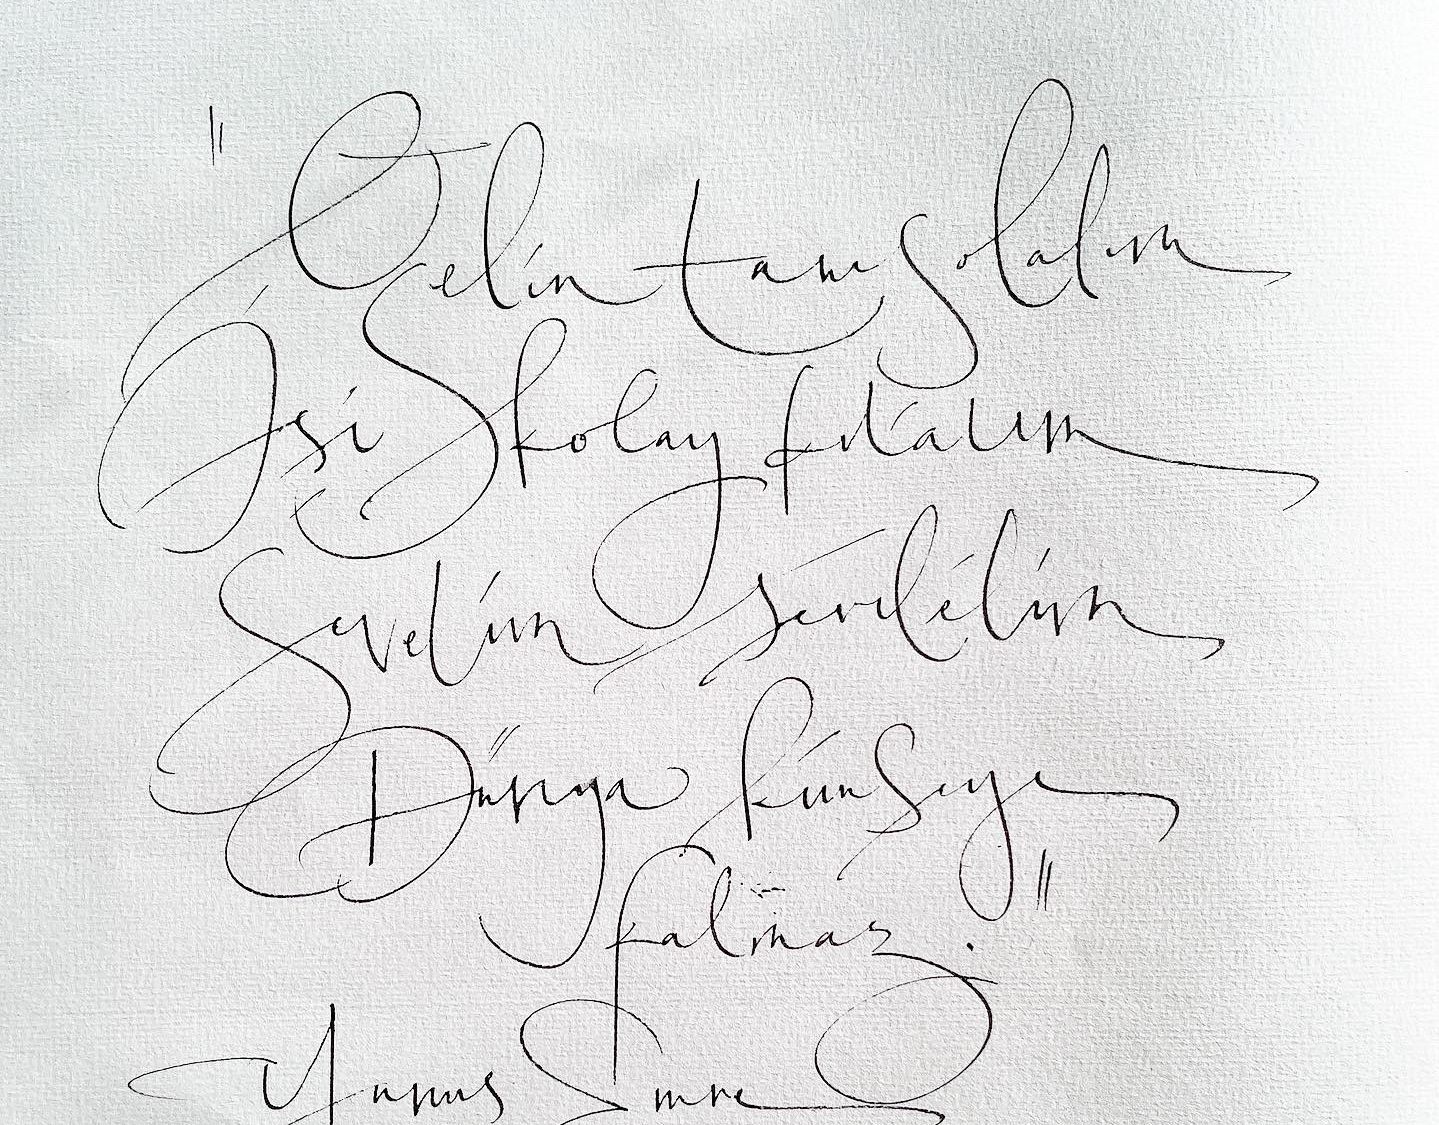 "Gelin tanış olalım
İşi kolay kılalım
Sevelim sevilelim
Dünya kimseye
kalmaz."
Yunus Emre